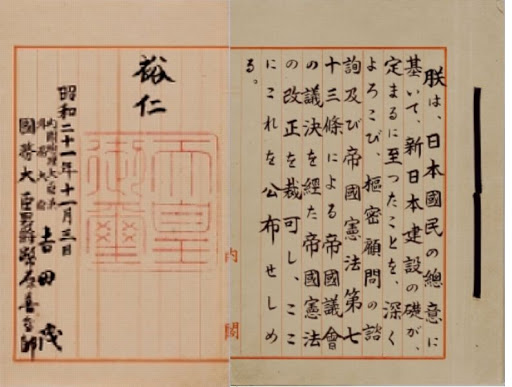 朕は、日本國民の總意に
基いて、新日本建設の礎が、
定まるに至つたことを、深く
よろこび、樞密顧問の諮
詢及び帝國憲法第七
十三條による帝國議會
の議決を經た帝國憲法
の改正を裁可し、ここ
にこれを公布せしめ
る。
内閣
裕仁
天皇
御璽
昭和二十一年十一月三日
内閣總理大臣兼
外務大臣
吉田茂
國務大臣 男爵 幣原喜重郎